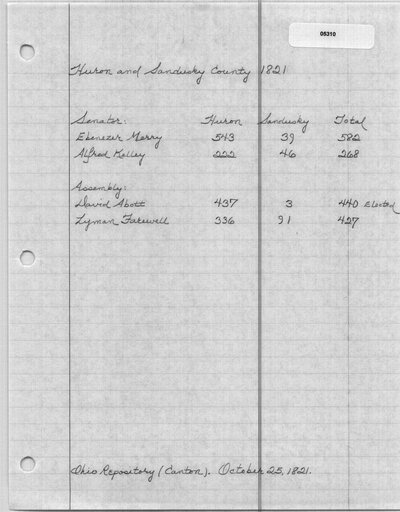 05310
Huron and Sandusky County 1821
Senator: Huron Sandusky Total
Ebenezer Merry 543 39 582
Alfred Kelley 222 46 268
Assembly:
David Abott 437 3 440 Elected
Lyman Farwell 336 91 427
Ohio Repository (Canton). October 25, 1821.